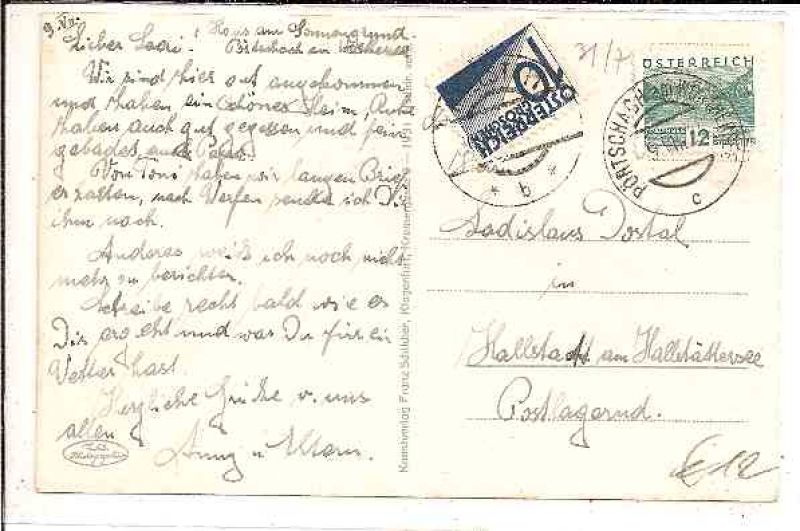 9. VII.
Lieber Laci! Haus am Sonnengrund
Pörtschach am
Wir sind hier gut angekommen
und haben ein schönes Heim,
haben auch gut gegessen und fein
gebadet, auch Papa.
Von Toni haben wir langen Brief
erhalten, nach Werfen sende ich Dir
ihn nach.
Anderes weiß ich noch nicht
mehr zu berichten.
Schreibe recht bald wie es
Dir ergeht und was Du für ein
Wetter hast.
Herzliche Grüße v. uns
allen
Anny u. Eltern
Kunstverlag Franz Schilcher, Klagenfurt,
10
ÖSTERREICH
GROSCHEN
* b *
31/7
ÖSTERREICH
12
PÖRTSCHACH AM WÖRTHERSEE
c
Ladislaus Dostal
in
Hallstatt am Hallstättersee
Postlagernd.
12